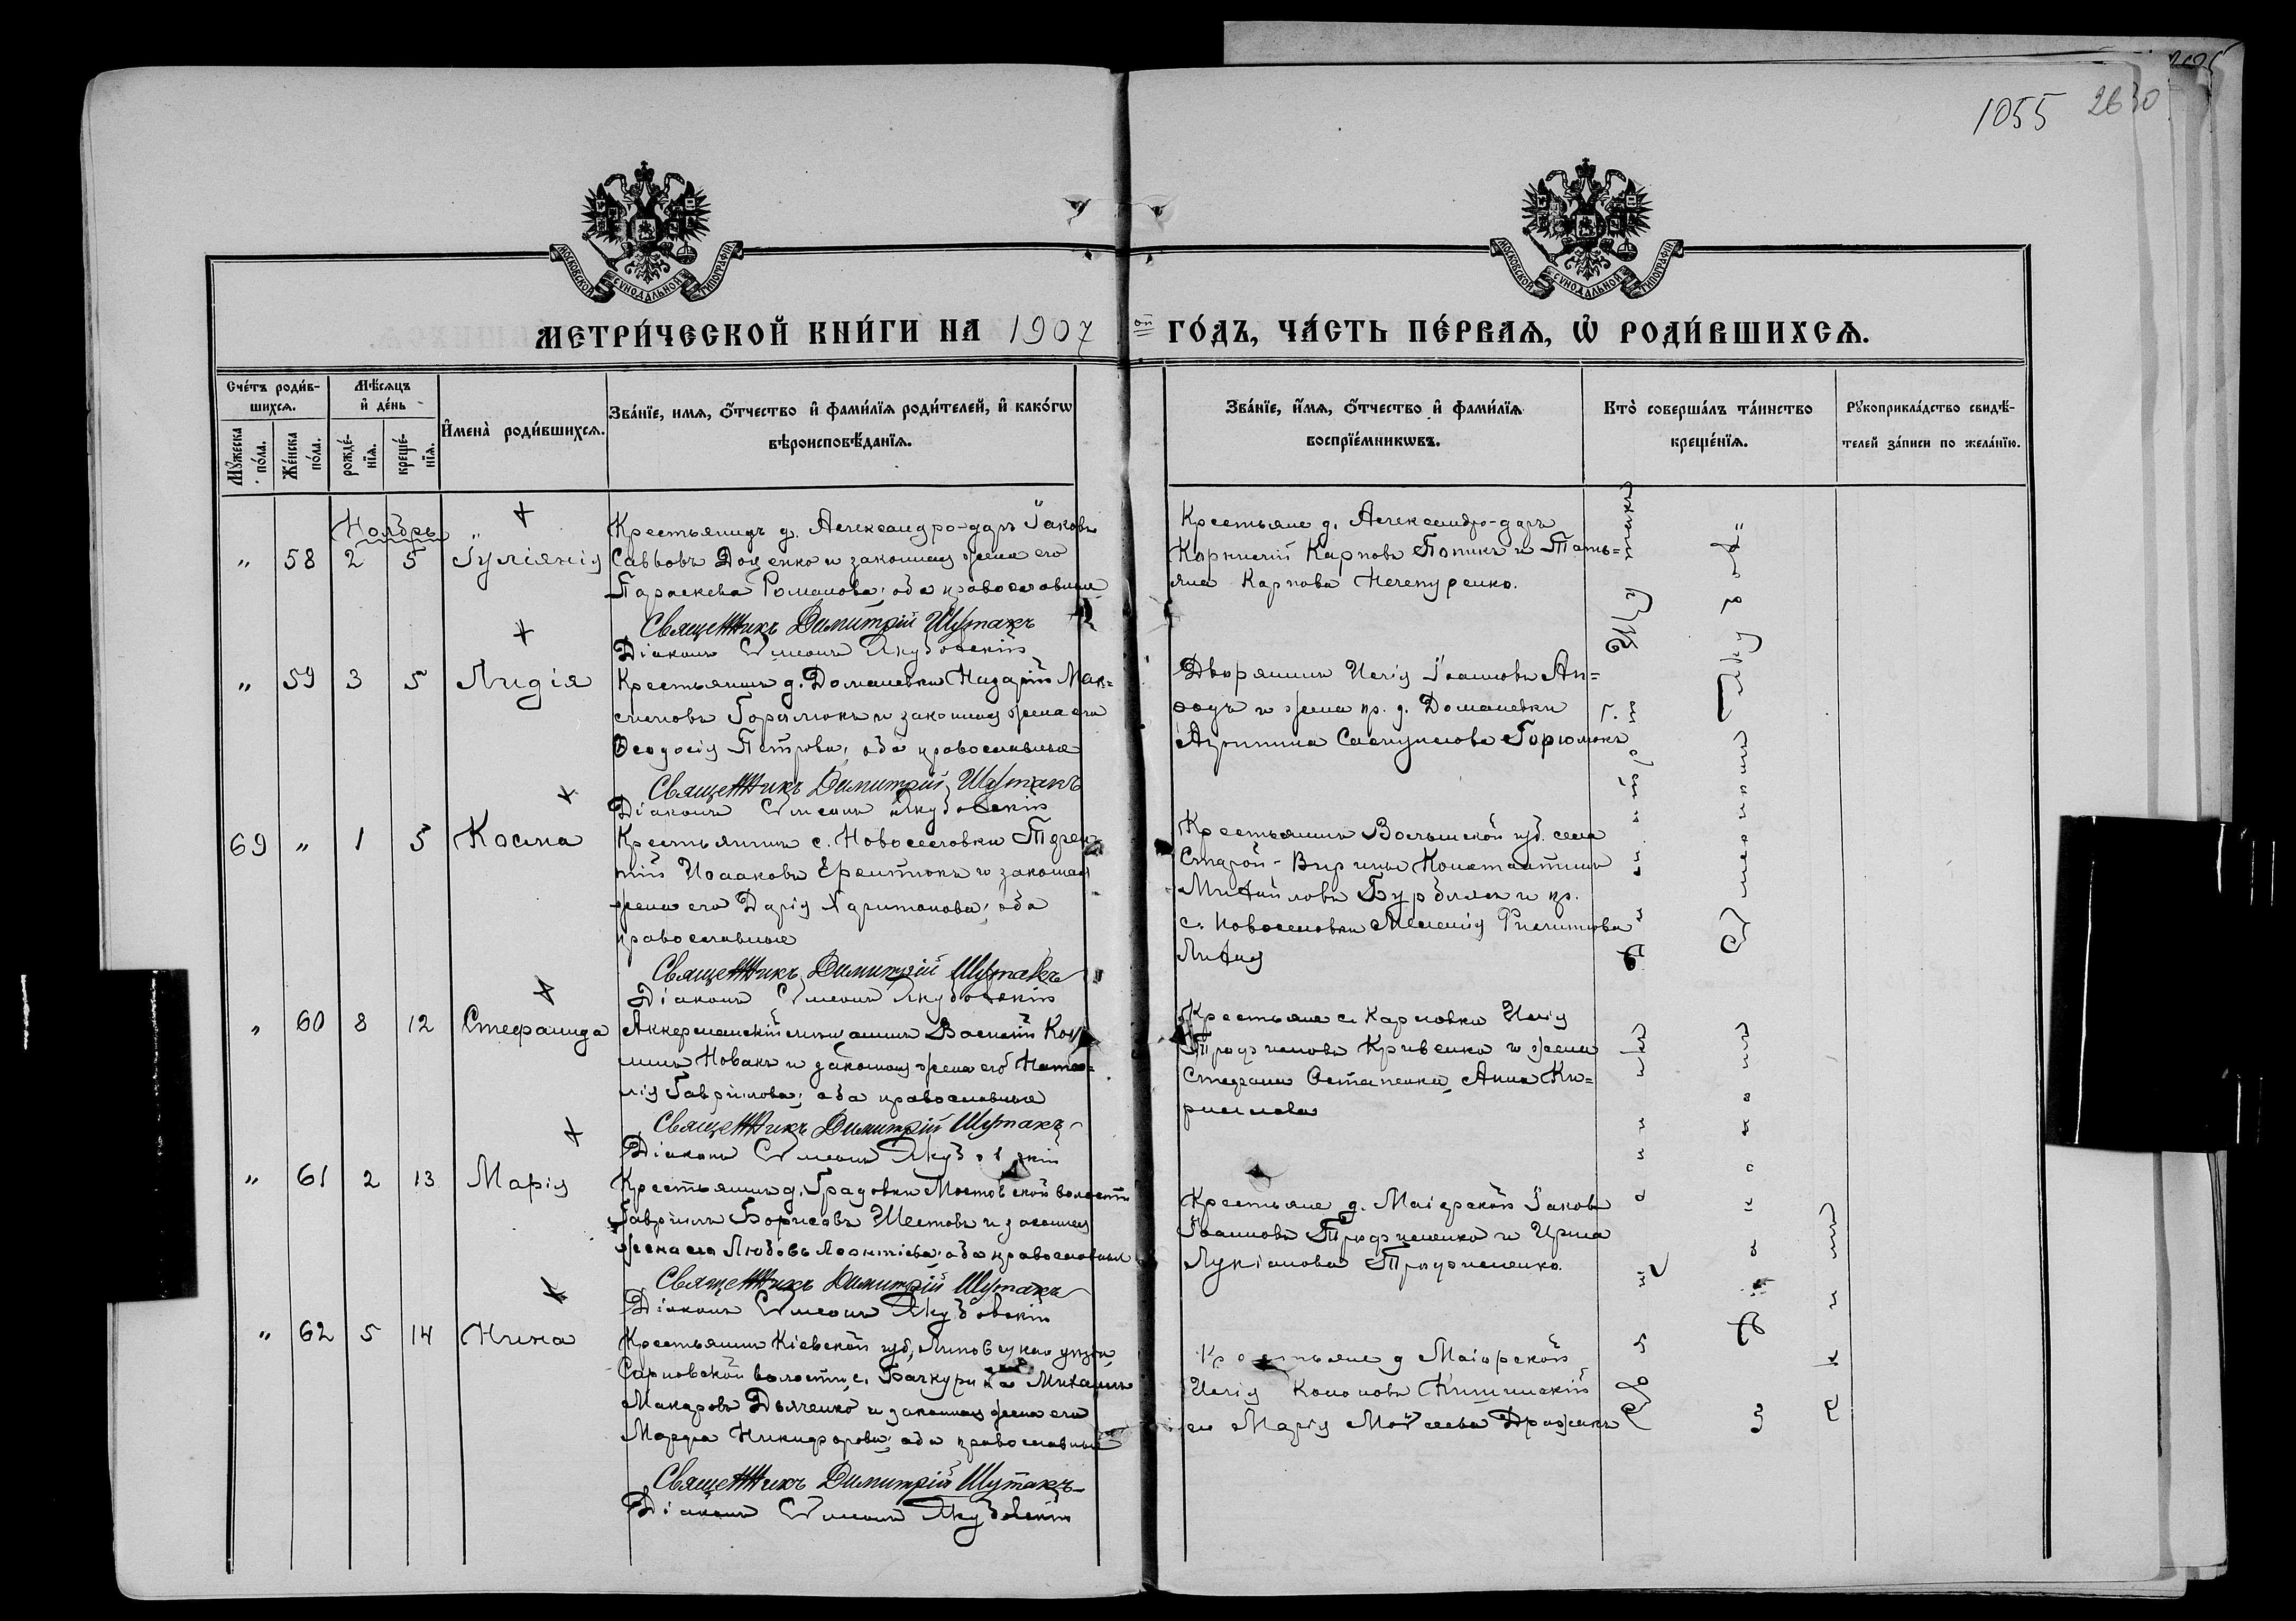 1055 2630
МОСКОВСКОЙ СѴНОДАЛЬНОЙ ТИПОГРАФІИ
МОСКОВСКОЙ СѴНОДАЛЬНОЙ ТИПОГРАФІИ
МЕТРИ́ЧЕСКОЙ КНИ́ГИ НА 1907 ой ГО́ДЪ, ЧА́СТЬ ПЕ́РВАЯ, Ѿ РОДИ́ВШИХСЯ.
Сче́тъ роди́в-
шихся.
Му́жеска по́ла.
Же́нска по́ла.
Мѣ́сяцъ
и де́нь
рожде́-
нїя.
креще́-
нїя.
Имена̀ роди́вшихся.
Зва́нїе, имя, о́тчество и фами́лїя роди́телей, и како́гѡ
вѣроисповѣ́данїя.
Зва́нїе, и́мя, о́тчество и фами́лїя
воспрїе́мникѡвъ.
Кто̀ соверша́лъ та́инство
креще́нїя.
Рꙋкоприкла́дство свидѣ́-
телей за́писи по жела́нїю.
Ноябрь
„ 58 2 5 Іуліянія
Крестьянинъ д. Александро-даръ Іаковъ
Саввовъ Доценко и законная жена его
Параскева Романова; оба православные
Священникъ Димитрій Шутакъ
Діаконъ Симеонъ Якубовскій
Крестьяне д. Александро-даръ
Корнилій Карповъ Попикъ и Тать=
яна Карпова Нечепуренко.
„ 59 3 5 Лидія
Крестьянинъ д. Доманевки Назарій Мак=
симовъ Горюмокъ и законная жена его
Ѳеодосія Петрова; оба православные
Священникъ Димитрій Шутакъ
Діаконъ Симеонъ Якубовскій
Дворянинъ Илія Іоанновъ Ан=
и жена кр. д. Доманевки
Агриппина
69 „ 1 5 Косма
Крестьянинъ с. Новоселовки Терен
тій Исааковъ и законная
жена его Дарія Харитонова; оба
православные
Священникъ Димитрій Шутакъ
Діаконъ Симеонъ Якубовскій
Крестьянинъ Волынской губ. села
Старой- Константинъ
Михайловъ и кр.
с. Новоселовки Филиппова
„ 60 8 12 Стефанида
Аккерманскій мѣщанинъ Василій
Новакъ и законная жена его Ната=
лія Гаврилова; оба православные
Священникъ Димитрій Шутакъ
Діаконъ Симеонъ Якубовскій
Крестьяне с. Карловки Илія
Трофимовъ Кривенко и жена
Стефана Остапенка, Анна Ки=
риллова
„ 61 2 13 Марія
Крестьянинъ д. Градовки Мостовской волости
Гавріилъ Борисовъ Шестовъ и законная
жена его Любовь Леонтіева; оба православные
Священникъ Димитрій Шутакъ
Діаконъ Симеонъ Якубовскій
Крестьяне д. Маіорской Іаковъ
Іоанновъ Трофименко и Ирина
Лукіанова Трофименко.
„ 62 5 14 Нина
Крестьянинъ Кіевской губ, Липовецкаго уѣзда
волости, с. Михаилъ
Макаровъ Дьяченко и законная жена его
Марфа Никифорова; оба православные
Священникъ Димитрій Шутакъ
Діаконъ Симеонъ Якубовскій
Крестьяне д Маіорской
Илія Кононовъ
и Марія Моѵсеева
Священникъ Димитрій Шутакъ